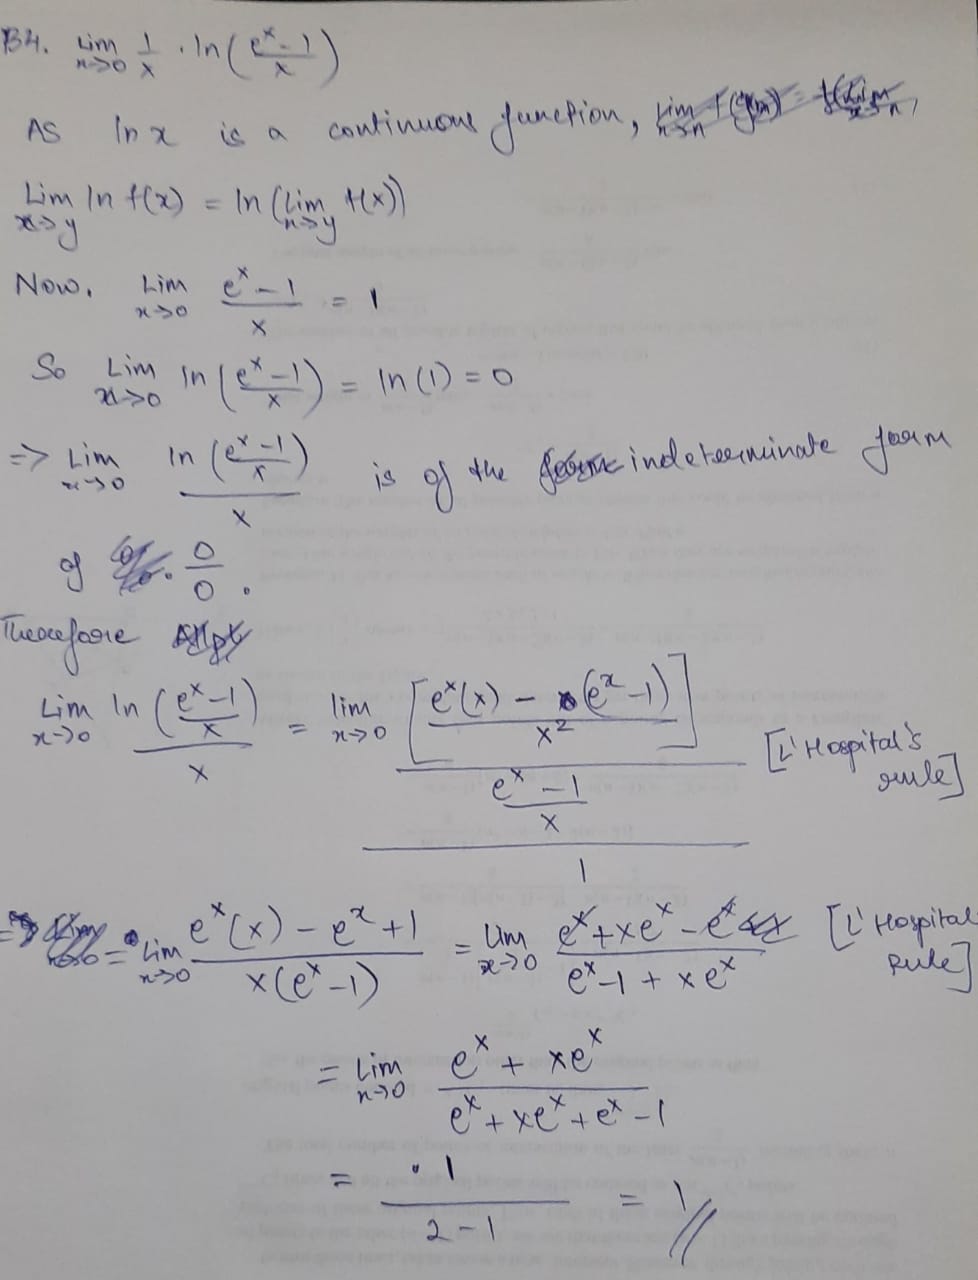 B4. Lim x→0 1/x · ln((e^x - 1)/x)
As ln x is a continuous function,
Lim x→y ln f(x) = ln(Lim x→y f(x))
Now, Lim x→0 (e^x - 1)/x = 1
So Lim x→0 ln((e^x - 1)/x) = ln(1) = 0
=> Lim x→0 ln((e^x - 1)/x)/x is of the indeterminate form
of 0/0.
Therefore
Lim x→0 ln((e^x - 1)/x)/x = lim x→0 [(e^x(x) - (e^x - 1))/x^2]/((e^x - 1)/x)/1 [L'Hospital's rule]
= Lim x→0 (e^x(x) - e^x + 1)/(x(e^x - 1)) = Lim x→0 (e^x + xe^x - e^x)/(e^x - 1 + xe^x) [L'Hospital Rule]
= Lim x→0 (e^x + xe^x)/(e^x + xe^x + e^x - 1)
= 1/(2-1) = 1//